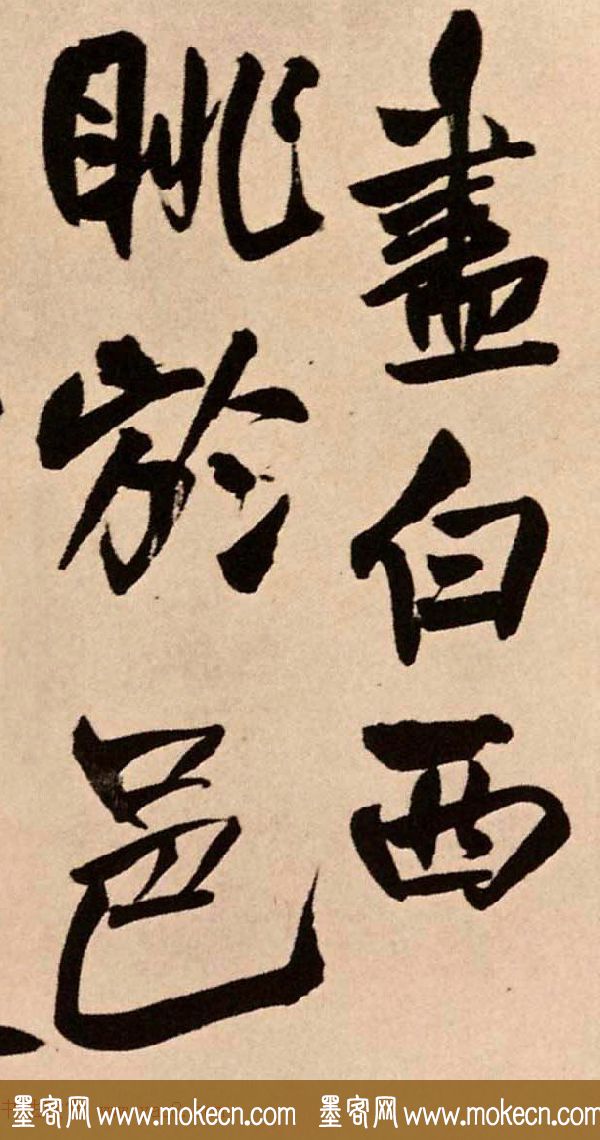 盡白西
眺於邑
墨客网 www.mokecn.com 墨客网 www.mokecn.com